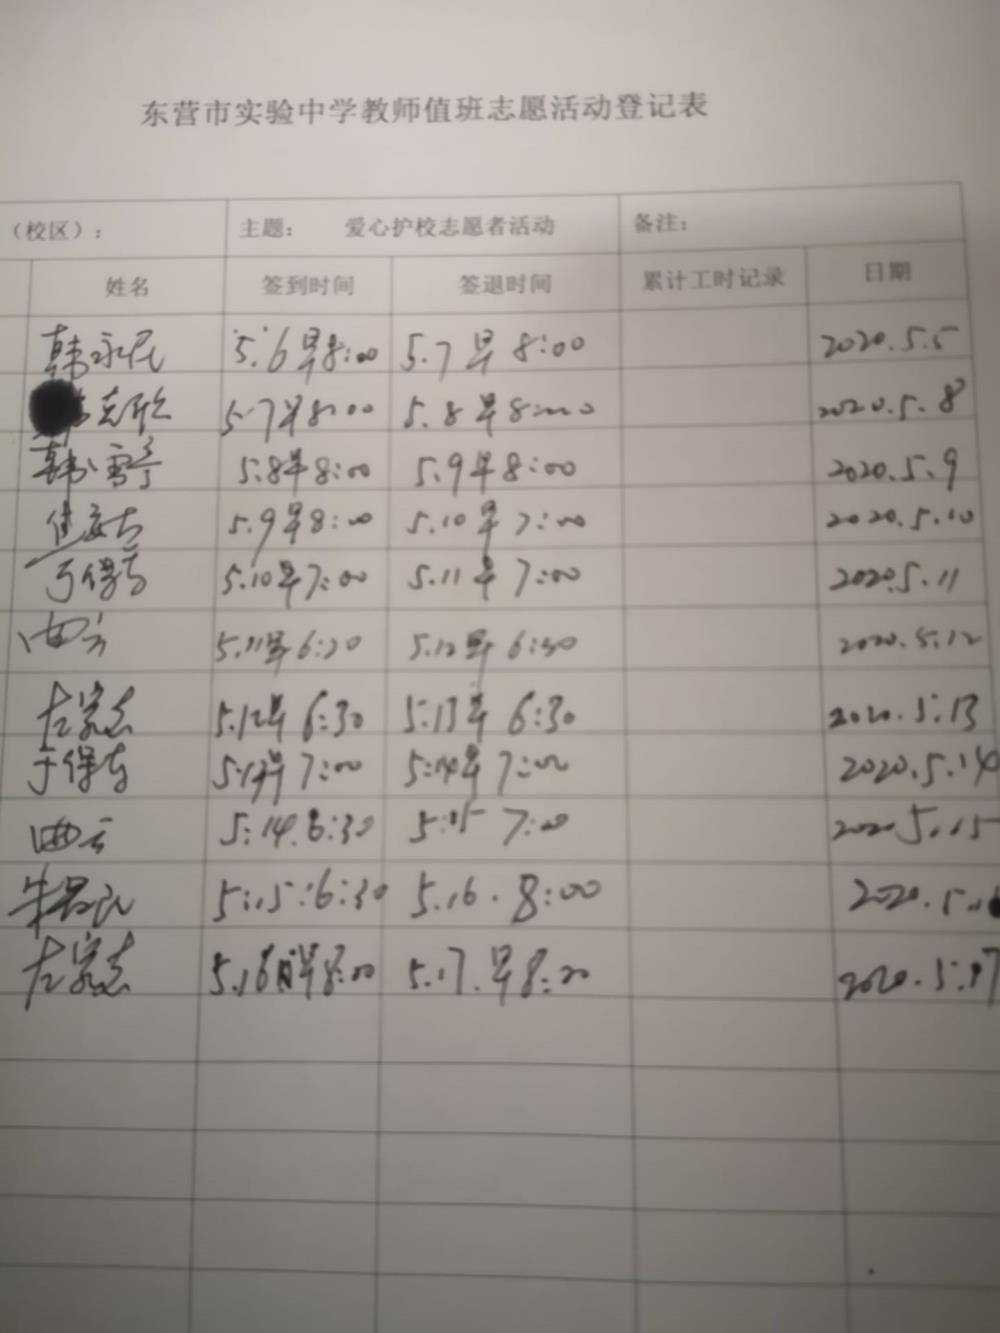 东营市实验中学教师值班志愿活动登记表
（校区）： 主题： 爱心护校志愿者活动 备注：
姓名 签到时间 签退时间 累计工时记录 日期
韩永民 5.6早8:00 5.7早8:00 2020.5.5
志欣 5.7早8:00 5.8早8:00 2020.5.8
韩雪亭 5.8早8:00 5.9早8:00 2020.5.9
5.9早8:00 5.10早7:00 2020.5.10
于保 5.10早7:00 5.11早7:00 2020.5.11
曲云 5.11早6:30 5.12早6:30 2020.5.12
左家志 5.12早6:30 5.13早6:30 2020.5.13
于保 5.13早7:00 5.14早7:00 2020.5.14
曲云 5.14.6:30 5.15 7:00 2020.5.15
朱 5.15:6:30 5.16.8:00 2020.5.
左家志 5.16早8:00 5.17.早8:20 2020.5.17